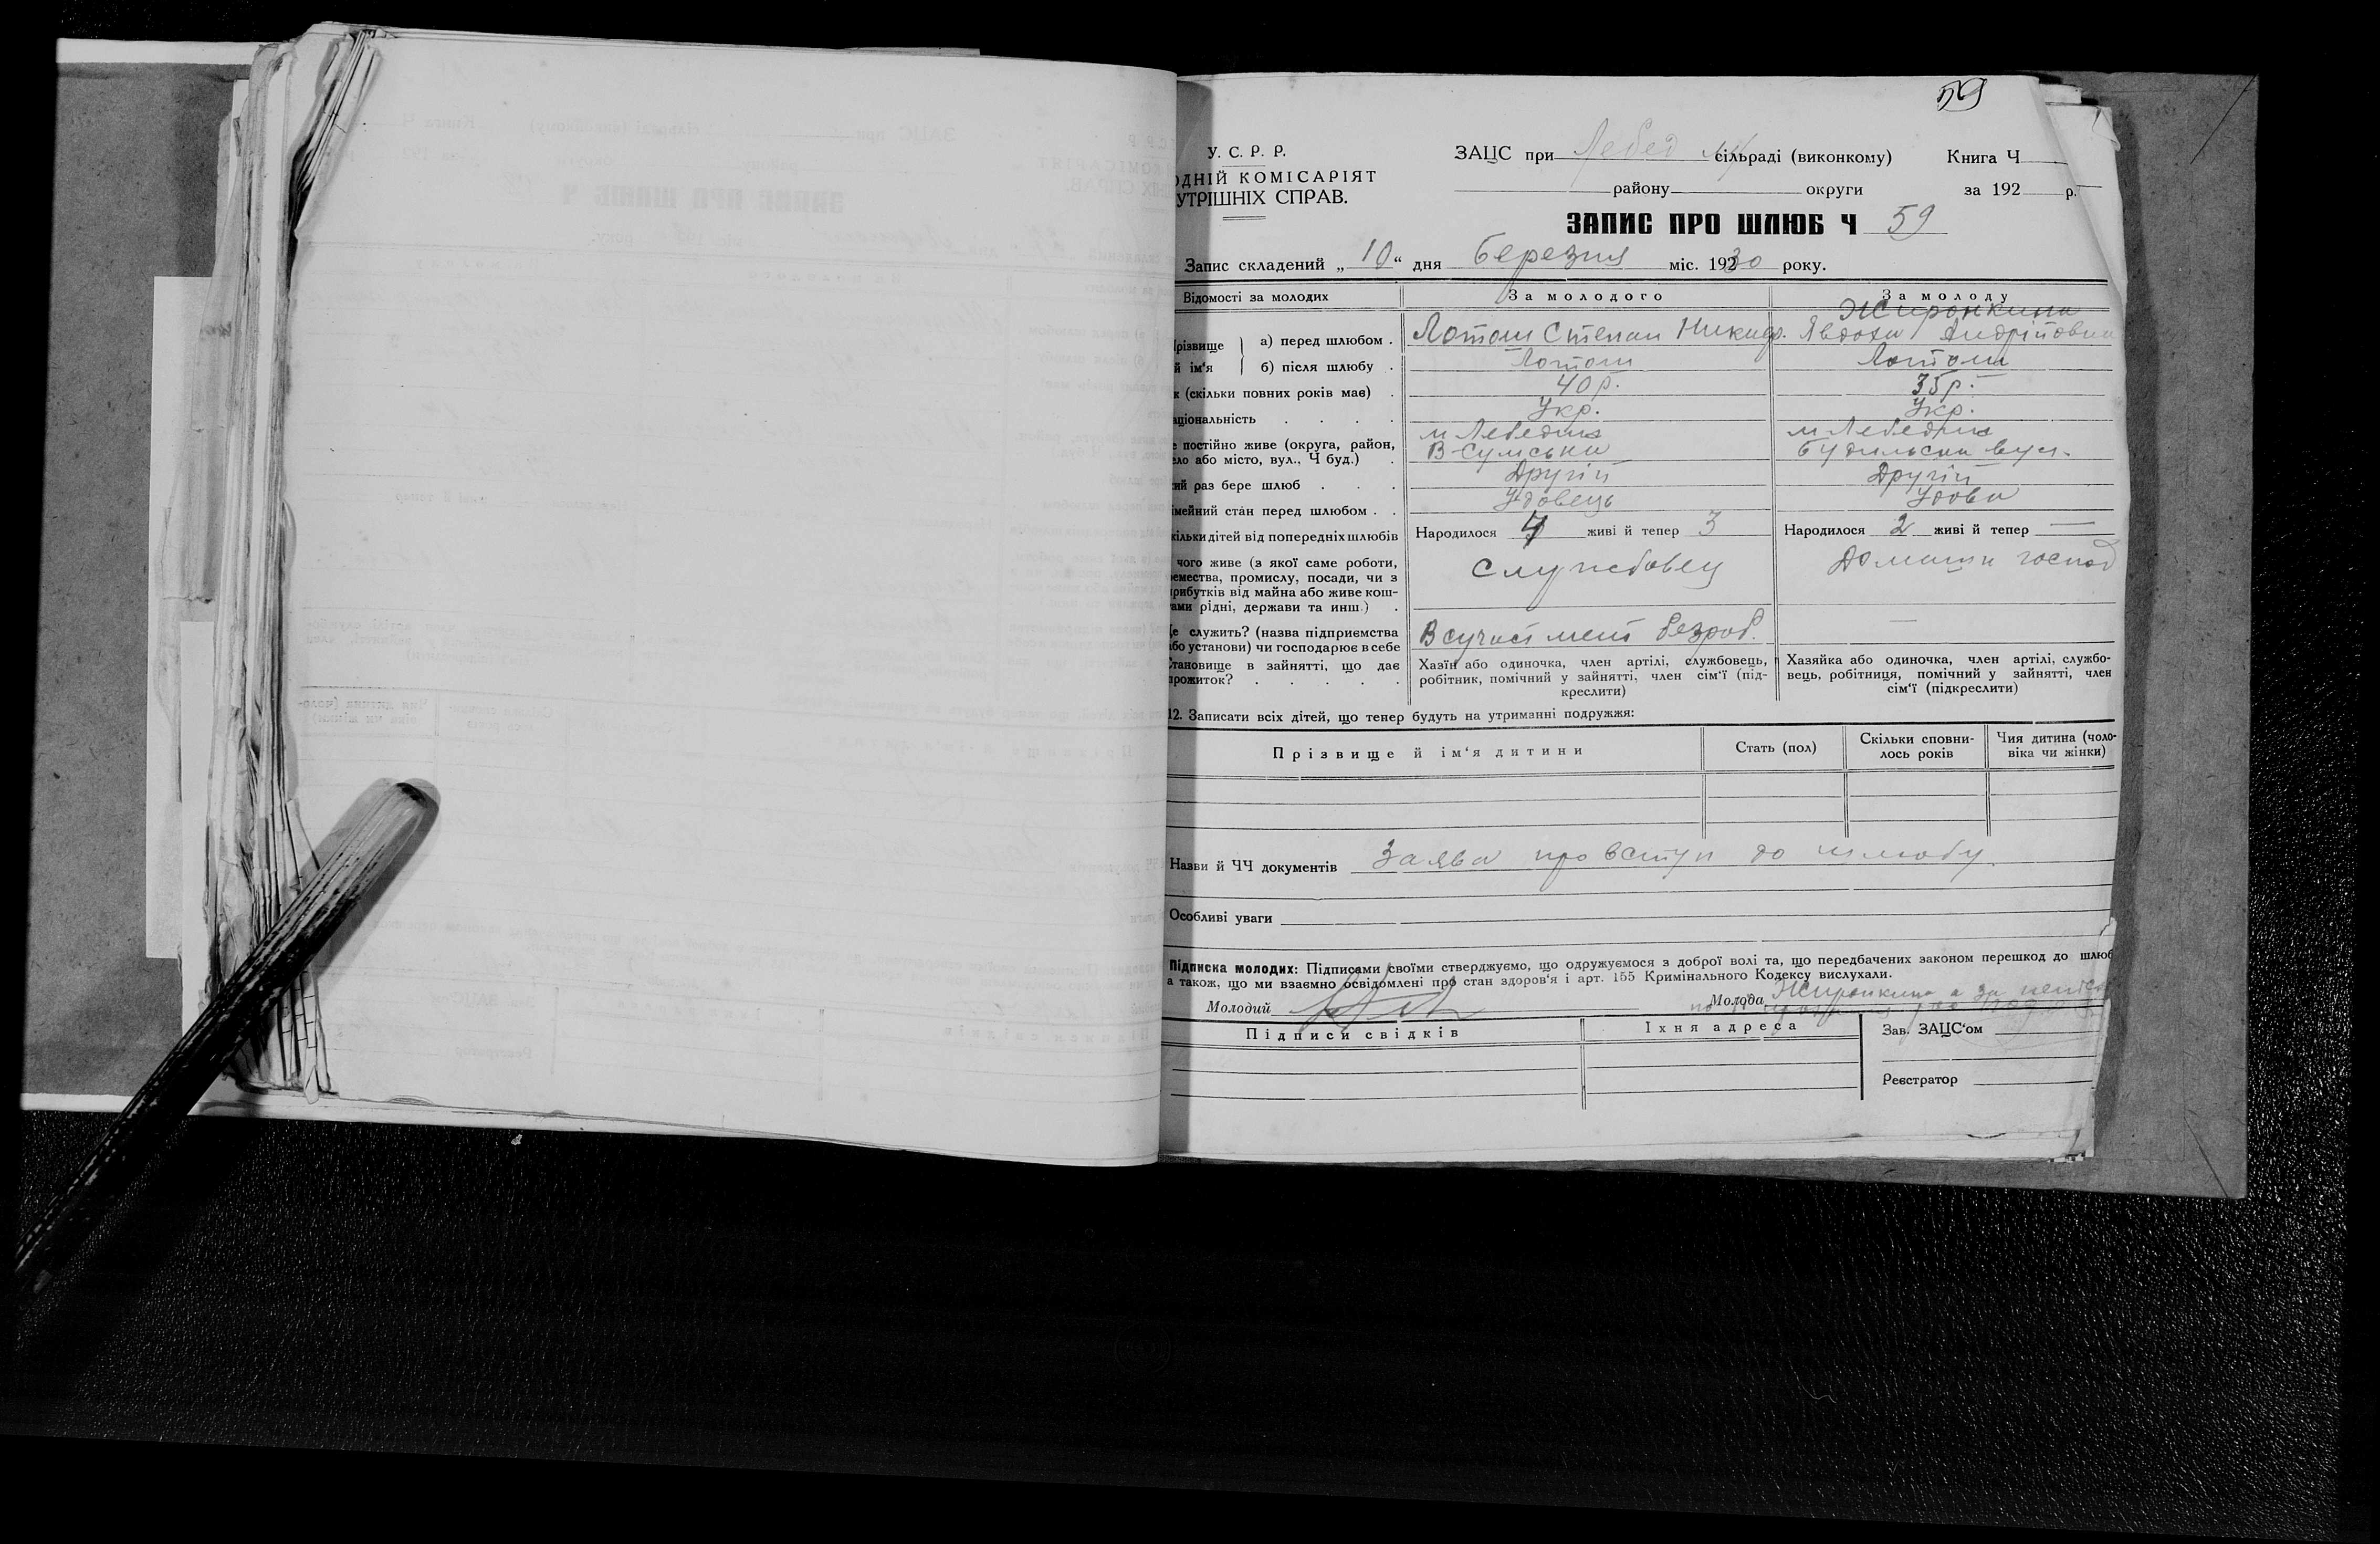 59
У. С. Р. Р.
ОДНІЙ КОМІСАРІЯТ
УТРІШНІХ СПРАВ.
ЗАЦС при Лебед сільраді (виконкому) Книга Ч
району округи за 192 р.
ЗАПИС ПРО ШЛЮБ Ч 59
Запис складений „ 10 “ дня березня міс. 1930 року.
Відомості за молодих За молодого За молоду
Жиронкина
різвище й ім'я а) перед шлюбом . Лотош Степан Никиф. Явдоха Андріївна
б) після шлюбу . Лотош Лотош
к (скільки повних років має) . 40 р. 35 р.
аціональність . . . . Укр. Укр.
е постійно живе (округа, район, м Лебедин м Лебедин
ело або місто, вул., Ч буд.) . В-Сумська Будильска вул.
ий раз бере шлюб . . . Другій Другій
імейний стан перед шлюбом . . Удовець Удова
кільки дітей від попередніх шлюбів Народилося 4 живі й тепер 3 Народилося 2 живі й тепер —
чого живе (з якої саме роботи, Службовец Домашн господ
емества, промислу, посади, чи з
рибутків від майна або живе кош-
ами рідні, держави та инш.) .
Де служить? (назва підприємства В сучасн мент безроб. —
або установи) чи господарює в себе
Становище в зайнятті, що дає прожиток? . . . . .
Хазїн або одиночка, член артілі, службовець, робітник, помічний у зайнятті, член сім'ї (під-
креслити)
Хазяйка або одиночка, член артілі, службо-
вець, робітниця, помічний у зайнятті, член
сім'ї (підкреслити)
12. Записати всіх дітей, що тепер будуть на утриманні подружжя:
Прізвище й ім'я дитини Стать (пол) Скільки сповни-
лось років Чия дитина (чоло-
віка чи жінки)
Назви й ЧЧ документів Заява про вступ до шлюбу.
Особливі уваги
Підписка молодих: Підписами своїми стверджуємо, що одружуємося з доброї волі та, що передбачених законом перешкод до шлюб
а також, що ми взаємно освідомлені про стан здоров'я і арт. 155 Кримінального Кодексу вислухали.
Молодий Молода Жиронкина а за
Підписи свідків Їхня адреса Зав. ЗАЦС'ом
Реєстратор